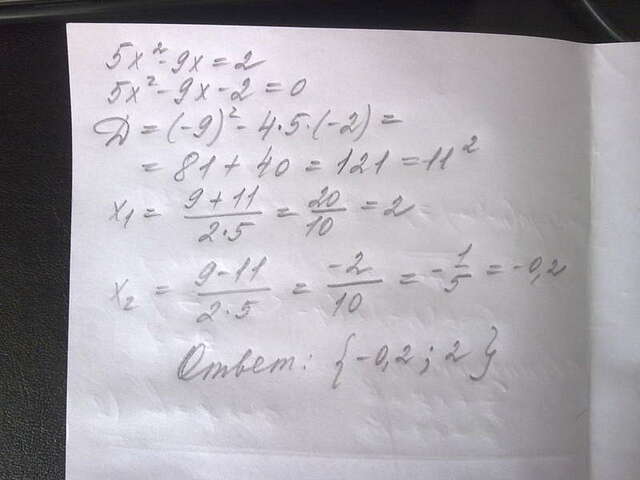 5x² - 9x = 2
5x² - 9x - 2 = 0
D = (-9)² - 4·5·(-2) =
= 81 + 40 = 121 = 11²
x₁ = (9 + 11)/(2·5) = 20/10 = 2
x₂ = (9 - 11)/(2·5) = -2/10 = -1/5 = -0,2
Ответ: {-0,2; 2}